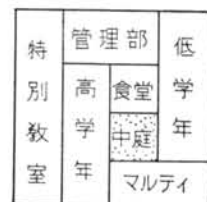 特別教室
管理部
高学年
食堂
中庭
低学年
マルティ